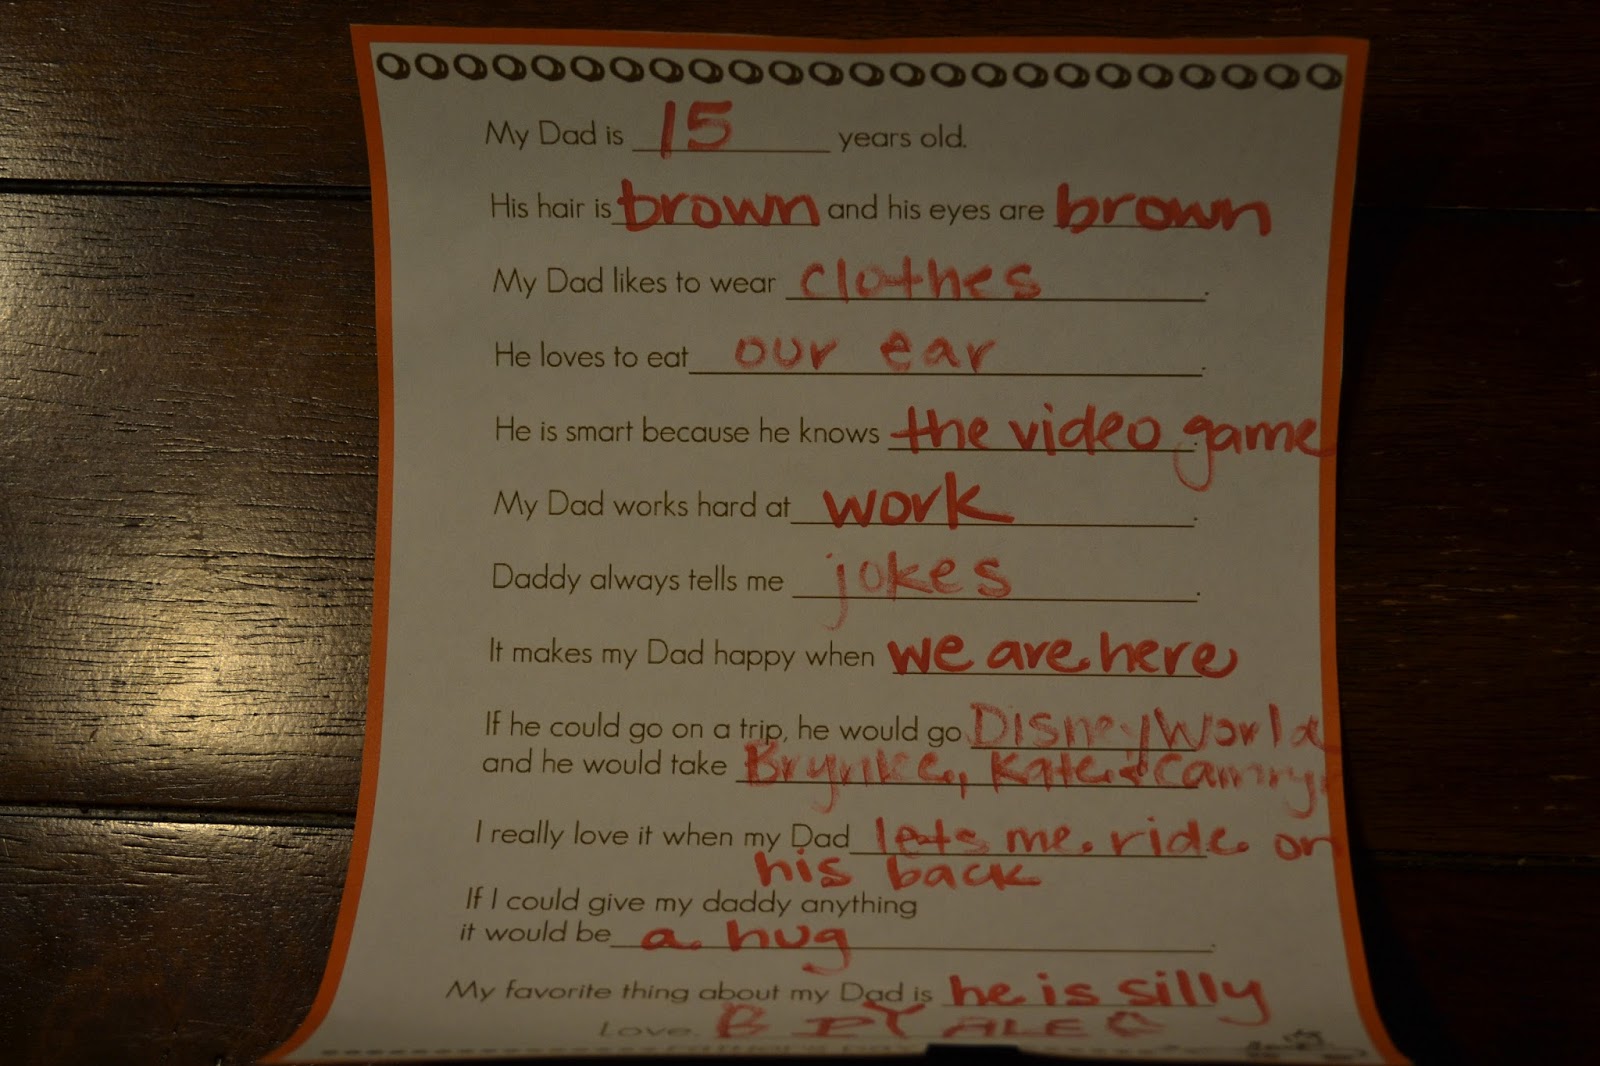 My Dad is 15 years old.
His hair is brown and his eyes are brown
My Dad likes to wear clothes.
He loves to eat our ear.
He is smart because he knows the video game
My Dad works hard at work.
Daddy always tells me jokes.
It makes my Dad happy when we are here
If he could go on a trip, he would go Disney World
and he would take Brynlee, Kate & Camryn
I really love it when my Dad lets me ride on
his back
If I could give my daddy anything
it would be a hug.
My favorite thing about my Dad is he is silly
Love,